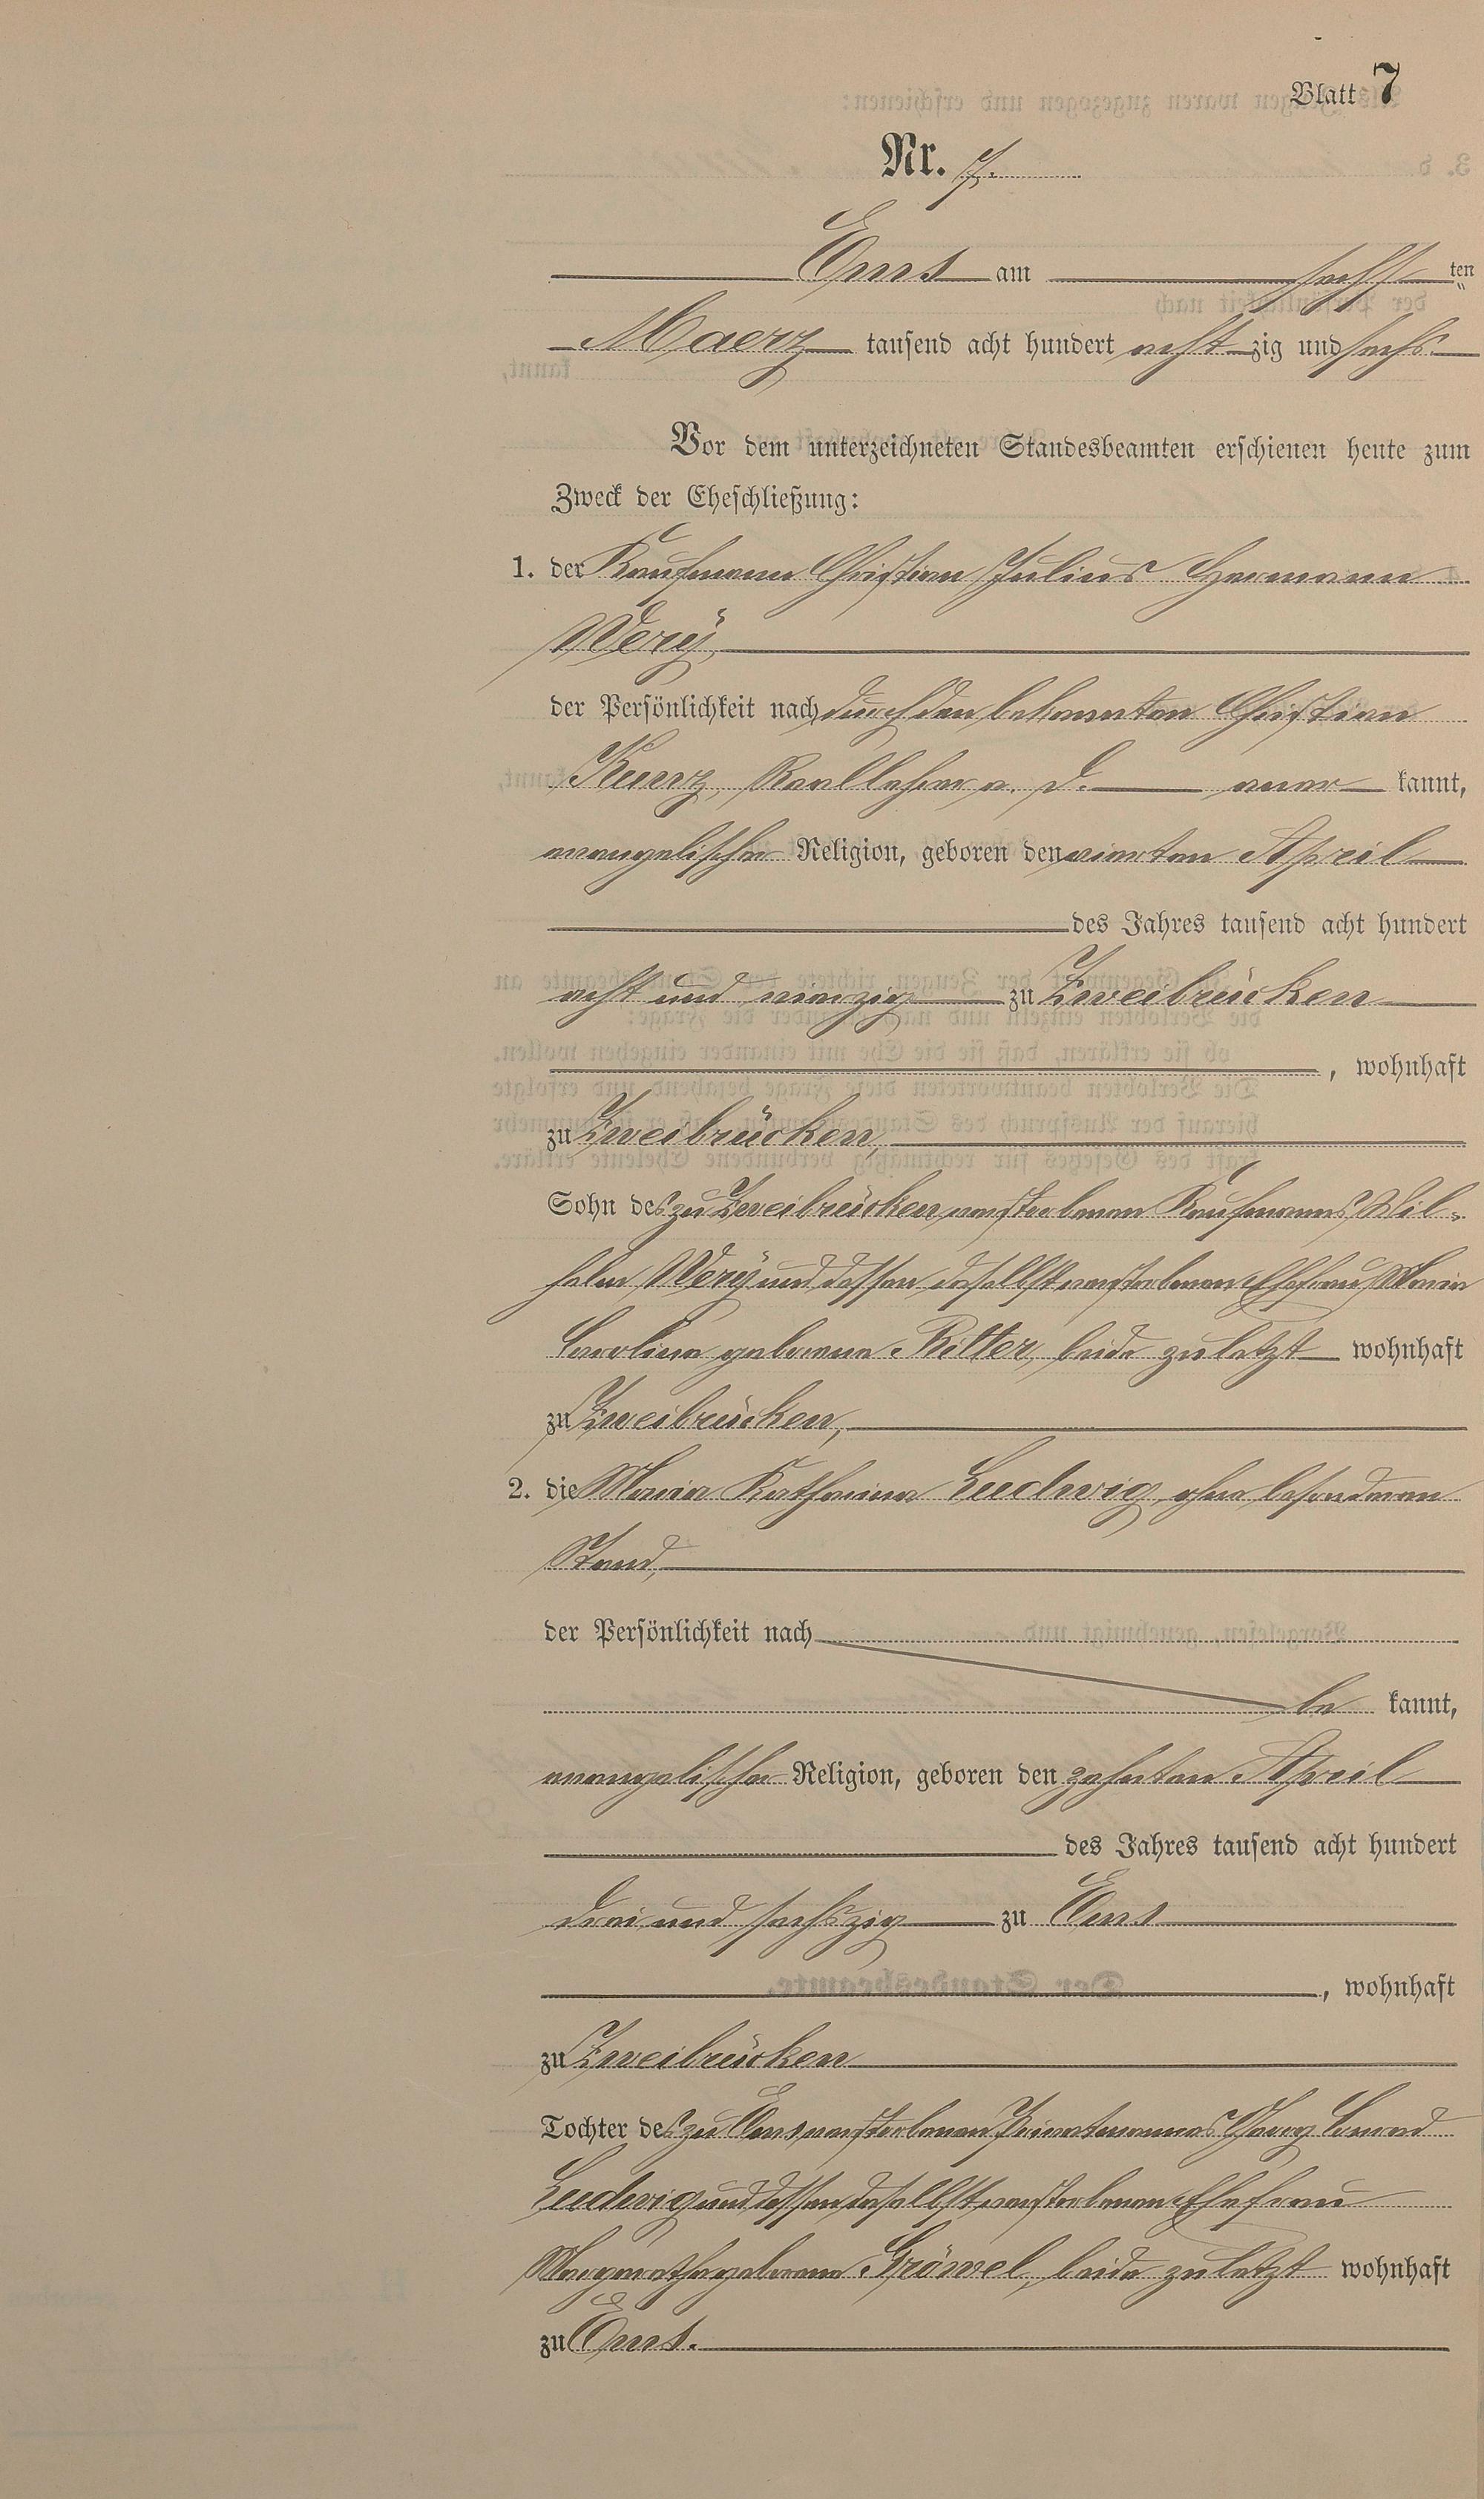 Blatt 7
Nr. 7.
Ems am sechsten
Maerz tausend acht hundert achtzig und sechs
Vor dem unterzeichneten Standesbeamten erschienen heute zum
Zweck der Eheschließung:
1. der Kaufmann Christian Julius Hermann
Verÿ,
der Persönlichkeit nach durch den bekannten Christian
Kunz, Reallehrer a. D. aner kannt,
evangelischer Religion, geboren den vierten April
des Jahres tausend acht hundert
acht und vierzig zu Zweibrücken
, wohnhaft
zu Zweibrücken,
Sohn des zu Zweibrücken verstorbenen Kaufmanns Wil-
helm Verÿ und dessen daselbst verstorbenen Ehefrau Maria
Carolina geborene Ritter, beide zuletzt wohnhaft
zu Zweibrücken,
2. die Maria Katharina Ludwig, ohne besonderen
Stand,
der Persönlichkeit nach
be kannt,
evangelischer Religion, geboren den zehnten April
des Jahres tausend acht hundert
drei und sechszig zu Ems
, wohnhaft
zu Zweibrücken
Tochter des zu Ems verstorbenen Privatmannes Georg Conrad
Ludwig und dessen daselbst verstorbenen Ehefrau
Margaretha geborene Gröwel, beide zuletzt wohnhaft
zu Ems.